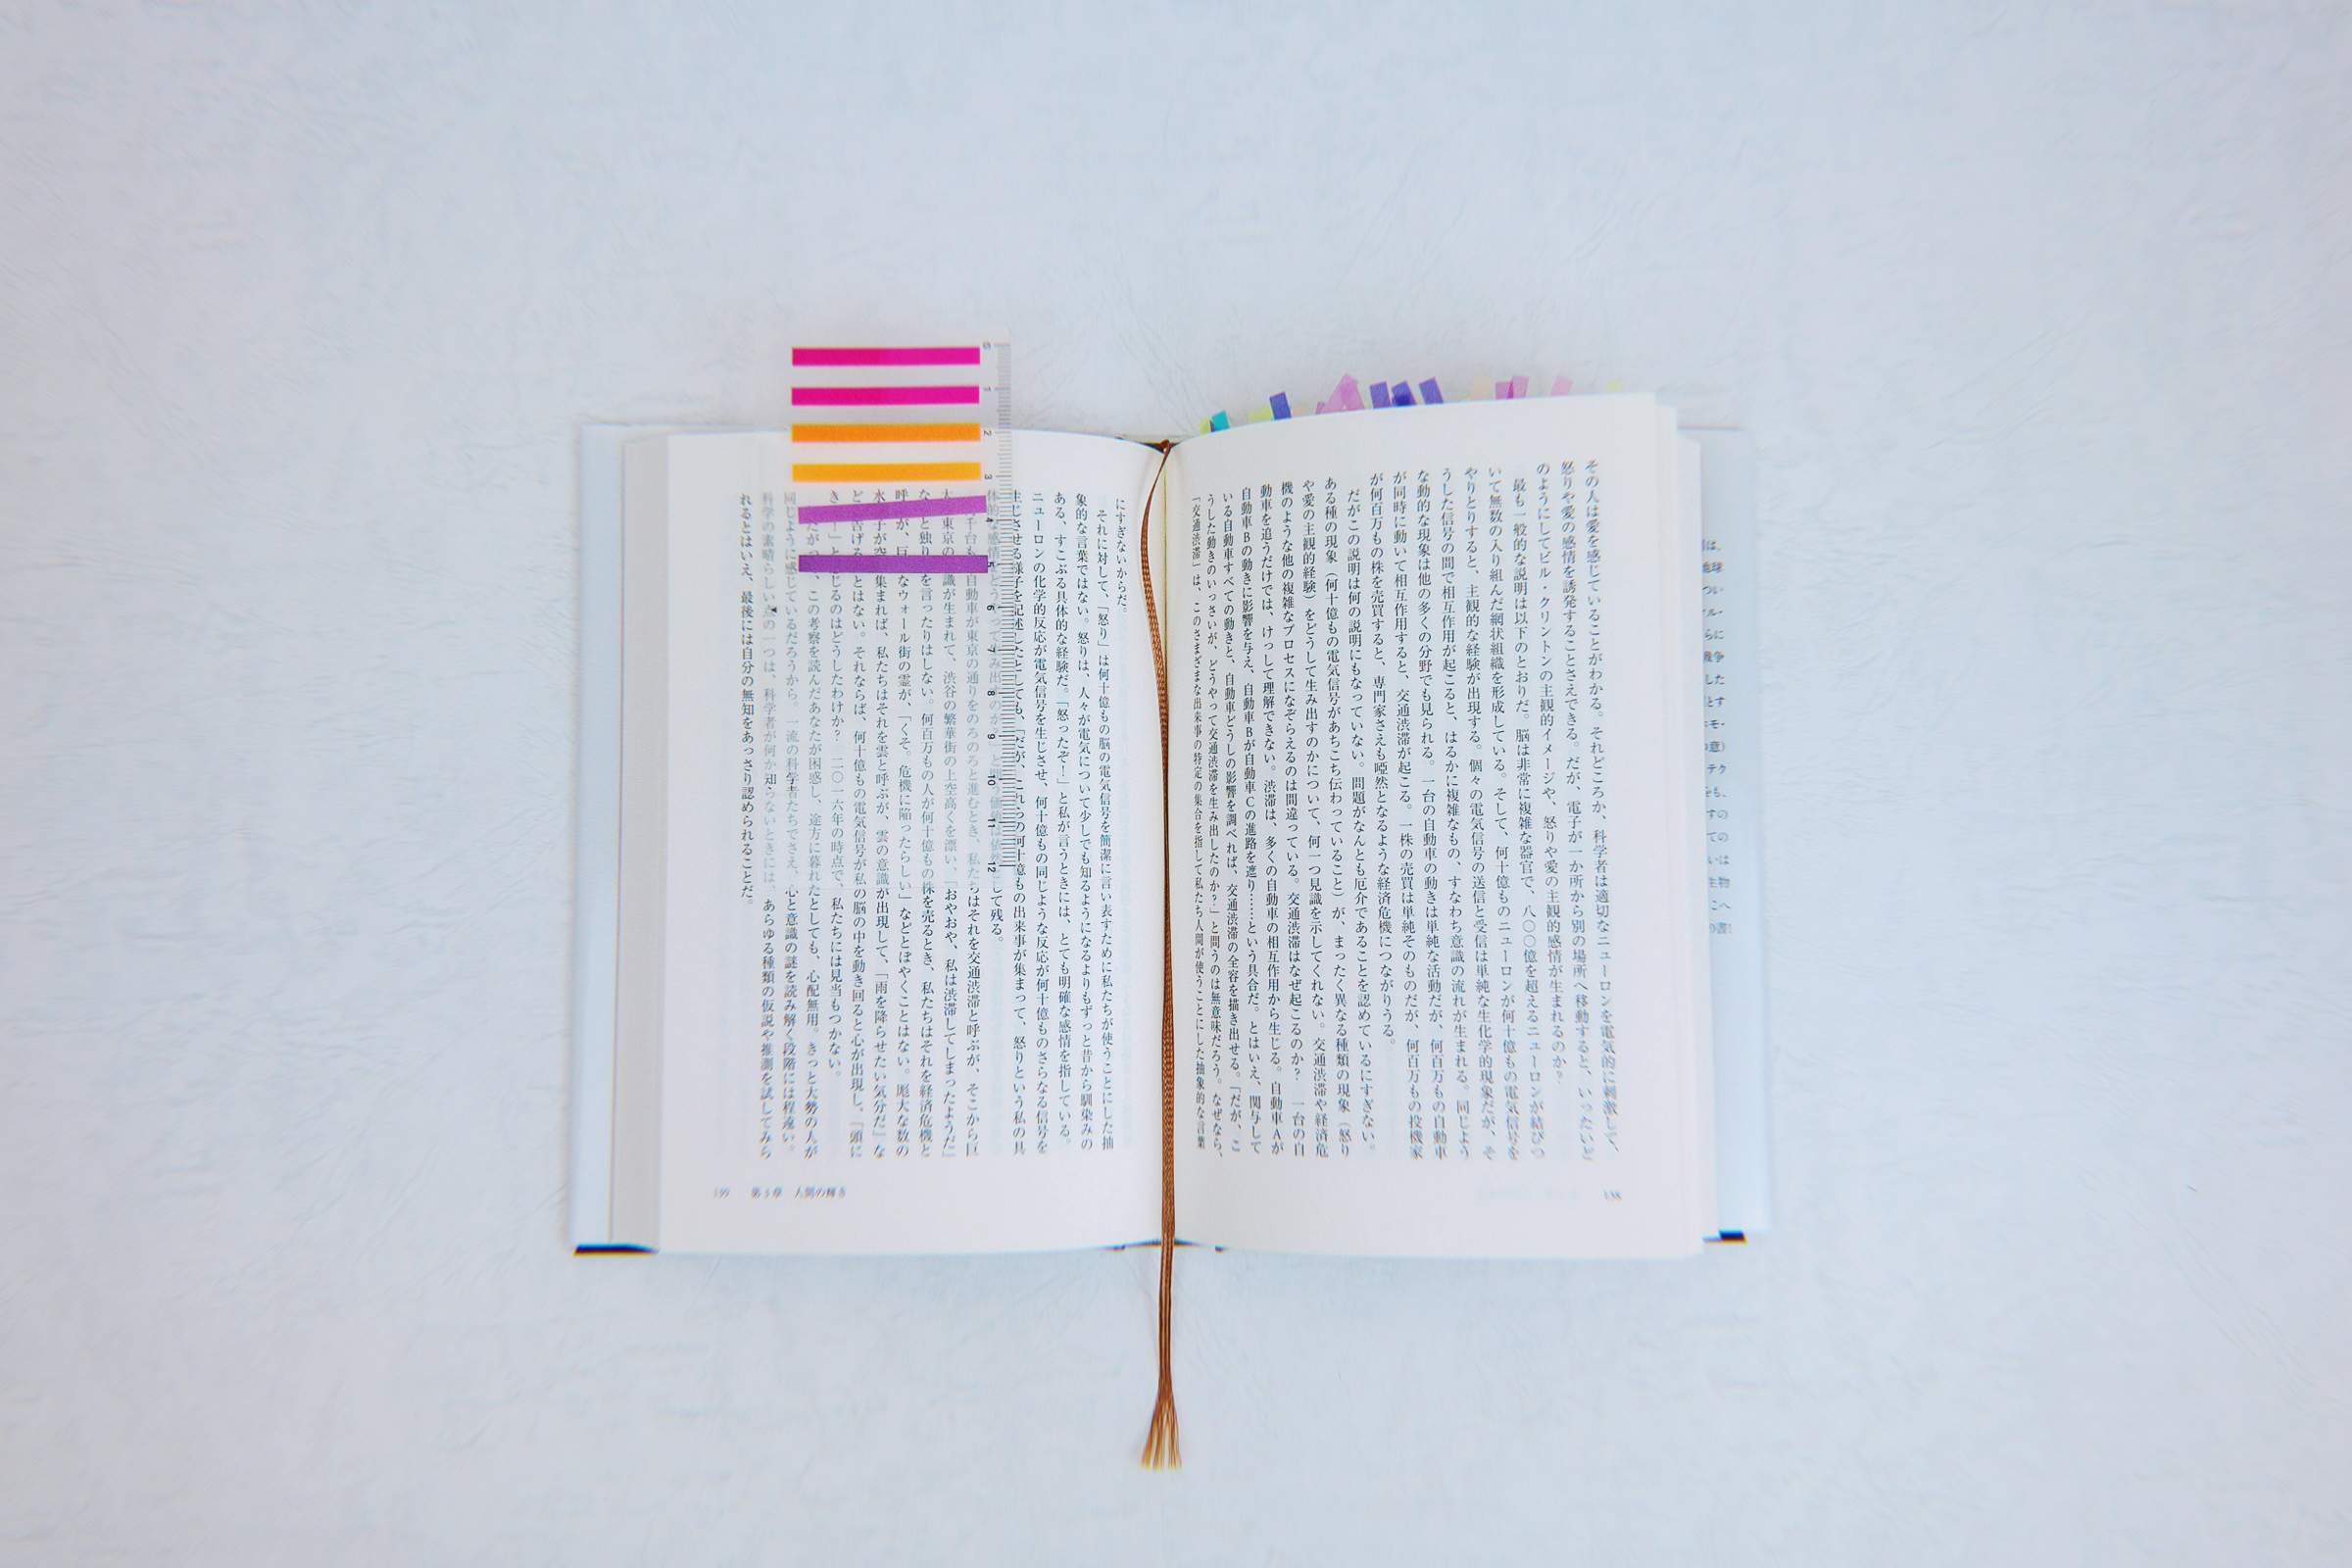 その人は愛を感じていることがわかる。それどころか、科学者は適切なニューロンを電気的に刺激して、
怒りや愛の感情を誘発することさえできる。だが、電子が一か所から別の場所へ移動すると、いったいど
のようにしてビル・クリントンの主観的イメージや、怒りや愛の主観的感情が生まれるのか?
最も一般的な説明は以下のとおりだ。脳は非常に複雑な器官で、八〇〇億を超えるニューロンが結びつ
いて無数の入り組んだ網状組織を形成している。そして、何十億ものニューロンが何十億もの電気信号を
やりとりすると、主観的な経験が出現する。個々の電気信号の送信と受信は単純な生化学的現象だが、そ
うした信号の間で相互作用が起こると、はるかに複雑なもの、すなわち意識の流れが生まれる。同じよう
な動的な現象は他の多くの分野でも見られる。一台の自動車の動きは単純な活動だが、何百万もの自動車
が同時に動いて相互作用すると、交通渋滞が起こる。一株の売買は単純そのものだが、何百万もの投機家
が何百万もの株を売買すると、専門家さえも啞然となるような経済危機につながりうる。
だがこの説明は何の説明にもなっていない。問題がなんとも厄介であることを認めているにすぎない。
ある種の現象(何十億もの電気信号があちこち伝わっていること)が、まったく異なる種類の現象(怒り
や愛の主観的経験)をどうして生み出すのかについて、何一つ見識を示してくれない。交通渋滞や経済危
機のような他の複雑なプロセスになぞらえるのは間違っている。交通渋滞はなぜ起こるのか? 一台の自
動車を追うだけでは、けっして理解できない。渋滞は、多くの自動車の相互作用から生じる。自動車Aが
自動車Bの動きに影響を与え、自動車Bが自動車Cの進路を遮り……という具合だ。とはいえ、関与して
いる自動車すべての動きと、自動車どうしの影響を調べれば、交通渋滞の全容を描き出せる。「だが、こ
うした動きのいっさいが、どうやって交通渋滞を生み出したのか?」と問うのは無意味だろう。なぜなら、
「交通渋滞」は、このさまざまな出来事の特定の集合を指して私たち人間が使うことにした抽象的な言葉
138
にすぎないからだ。
それに対して、「怒り」は何十億もの脳の電気信号を簡潔に言い表すために私たちが使うことにした抽
象的な言葉ではない。怒りは、人々が電気について少しでも知るようになるよりもずっと昔から馴染みの
ある、すこぶる具体的な経験だ。「怒ったぞ!」と私が言うときには、とても明確な感情を指している。
ニューロンの化学的反応が電気信号を生じさせ、何十億もの同じような反応が何十億ものさらなる信号を
生じさせる様子を記述したとしても、「だが、これらの何十億もの出来事が集まって、怒りという私の具
体的な感情をどうやって生み出すのか?」という疑問は依然として残る。
千台もの自動車が東京の通りをのろのろと進むとき、私たちはそれを交通渋滞と呼ぶが、そこから巨
大な東京の意識が生まれて、渋谷の繁華街の上空高くを漂い、「おやおや、私は渋滞してしまったようだ」
などと独り言を言ったりはしない。何百万もの人が何十億もの株を売るとき、私たちはそれを経済危機と
呼ぶが、巨大なウォール街の霊が、「くそ。危機に陥ったらしい」などとぼやくことはない。厖大な数の
水分子が空に集まれば、私たちはそれを雲と呼ぶが、雲の意識が出現して、「雨を降らせたい気分だ」な
どと告げることはない。それならば、何十億もの電気信号が私の脳の中を動き回ると心が出現し、「頭に
きた!」と感じるのはどうしたわけか? 二〇一六年の時点で、私たちには見当もつかない。
したがって、この考察を読んだあなたが困惑し、途方に暮れたとしても、心配無用。きっと大勢の人が
同じように感じているだろうから。一流の科学者たちでさえ、心と意識の謎を読み解く段階には程遠い。
科学の素晴らしい点の一つは、科学者が何か知らないときには、あらゆる種類の仮説や推測を試してみら
れるとはいえ、最後には自分の無知をあっさり認められることだ。
139 第3章 人間の輝き
0
1
2
3
4
5
6
7
8
9
10
11
12